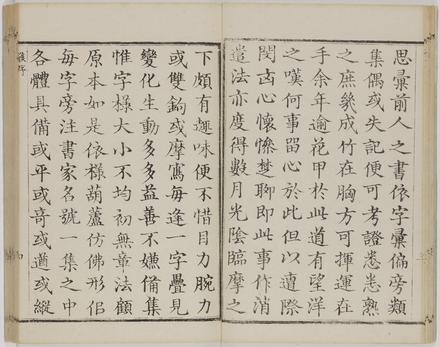 思彙前人之書依字彙偏旁類
集偶或失記便可考證悉悉熟
之庶幾成竹在胸方可揮運在
手余年逾花甲於此道有望洋
之嘆何事留心於此但以遭際
閔凶心懷慘楚聊即此事作消
遣法亦度得數月光陰臨摩之
下頗有趣味便不惜目力腕力
或雙鈎或摩寫每逢一字疊見
變化生動多多益善不嫌備集
惟字樣大小不均初無章法顧
原本如是依樣葫蘆仿佛形侣
每字旁注書家名號一集之中
各體具備或平或奇或遒或縱
後序